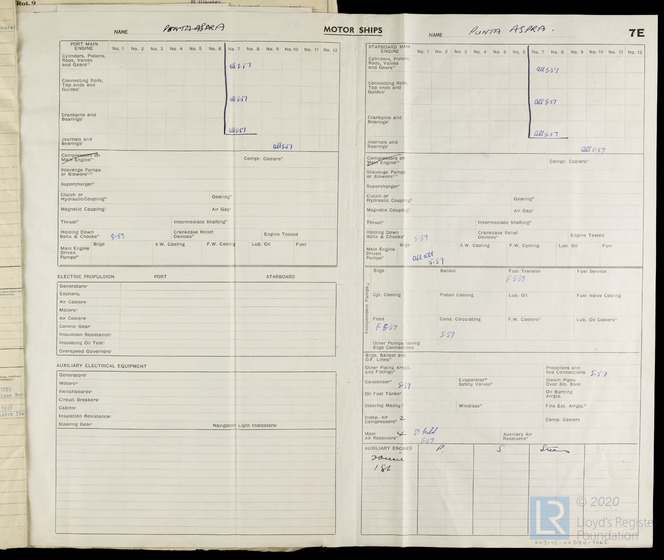 Rot. 9
NAME PUNTA ASPRA MOTOR SHIPS
PORT MAIN ENGINE No. 1 No. 2 No. 3 No. 4 No. 5 No. 6 No. 7 No. 8 No. 9 No. 10 No. 11 No. 12
Cylinders, Pistons, Rods, Valves and Gears
all 5·57
Connecting Rods, Top ends and Guides
all 5·57
Crankpins and Bearings
all 5·57
Journals and Bearings
all 5·57
Compressors on Main Engine Compr. Coolers
Scavenge Pumps or Blowers
Supercharger
Clutch or Hydraulic Coupling Gearing
Magnetic Coupling Air Gap
Thrust Intermediate Shafting
Holding Down Bolts & Chocks 5·57 Crankcase Relief Devices Engine Tested
Main Engine Driven Pumps Bilge S.W. Cooling F.W. Cooling Lub. Oil Fuel
ELECTRIC PROPULSION PORT STARBOARD
Generators
Exciters
Air Coolers
Motors
Air Coolers
Control Gear
Insulation Resistance
Insulating Oil Test
Overspeed Governors
AUXILIARY ELECTRICAL EQUIPMENT
Generators
Motors
Switchboards
Circuit Breakers
Cables
Insulation Resistance
Steering Gear Navigation Light Indicators
NAME PUNTA ASPRA. 7E
STARBOARD MAIN ENGINE No. 1 No. 2 No. 3 No. 4 No. 5 No. 6 No. 7 No. 8 No. 9 No. 10 No. 11 No. 12
Cylinders, Pistons, Rods, Valves and Gears
all 5·57
Connecting Rods, Top ends and Guides
all 5·57
Crankpins and Bearings
all 5·57
Journals and Bearings
all 5·57
Compressors on Main Engine Compr. Coolers
Scavenge Pumps or Blowers
Supercharger
Clutch or Hydraulic Coupling Gearing
Magnetic Coupling Air Gap
Thrust Intermediate Shafting
Holding Down Bolts & Chocks 5·57 Crankcase Relief Devices Engine Tested
Main Engine Driven Pumps Bilge S.W. Cooling F.W. Cooling Lub. Oil Fuel
5·57
Independent Pumps
Bilge Ballast Fuel Transfer Fuel Service
F 5·57
Cyl. Cooling Piston Cooling Lub. Oil Fuel Valve Cooling
Feed Cond. Circulating F.W. Coolers Lub. Oil Coolers
F 5·57 5·57
Other Pumps having Bilge Connections
Bilge, Ballast and O.F. Lines
Other Piping Arrgts. and Fittings Propellers and Sea Connections 5·57
Condenser 5·57 Evaporator Safety Valves Steam Pipes Over 3in. Bore
Oil Fuel Tanks Oil Burning Arrgts.
Steering Mainly Windlass Fire Ext. Arrgts.
Indep. Air Compressors 2 Comp. Coolers
Main Air Receivers 4 5·57 Auxiliary Air Receivers
AUXILIARY ENGINES P S Steam
182
© 2020
Lloyd's Register
Foundation